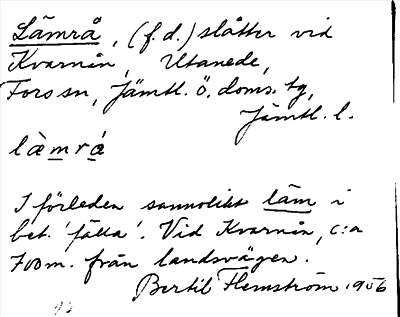 Lämrå, (f.d.) slåtter vid
Kvarnån, Utanede,
Fors sn, Jämtl. ö. doms. tg,
Jämtl. l.
lä̀mrá
I förleden sannolikt läm i
bet. 'fälla'. Vid Kvarnån, c:a
700 m. från landsvägen.
Bertil Flemström 1956